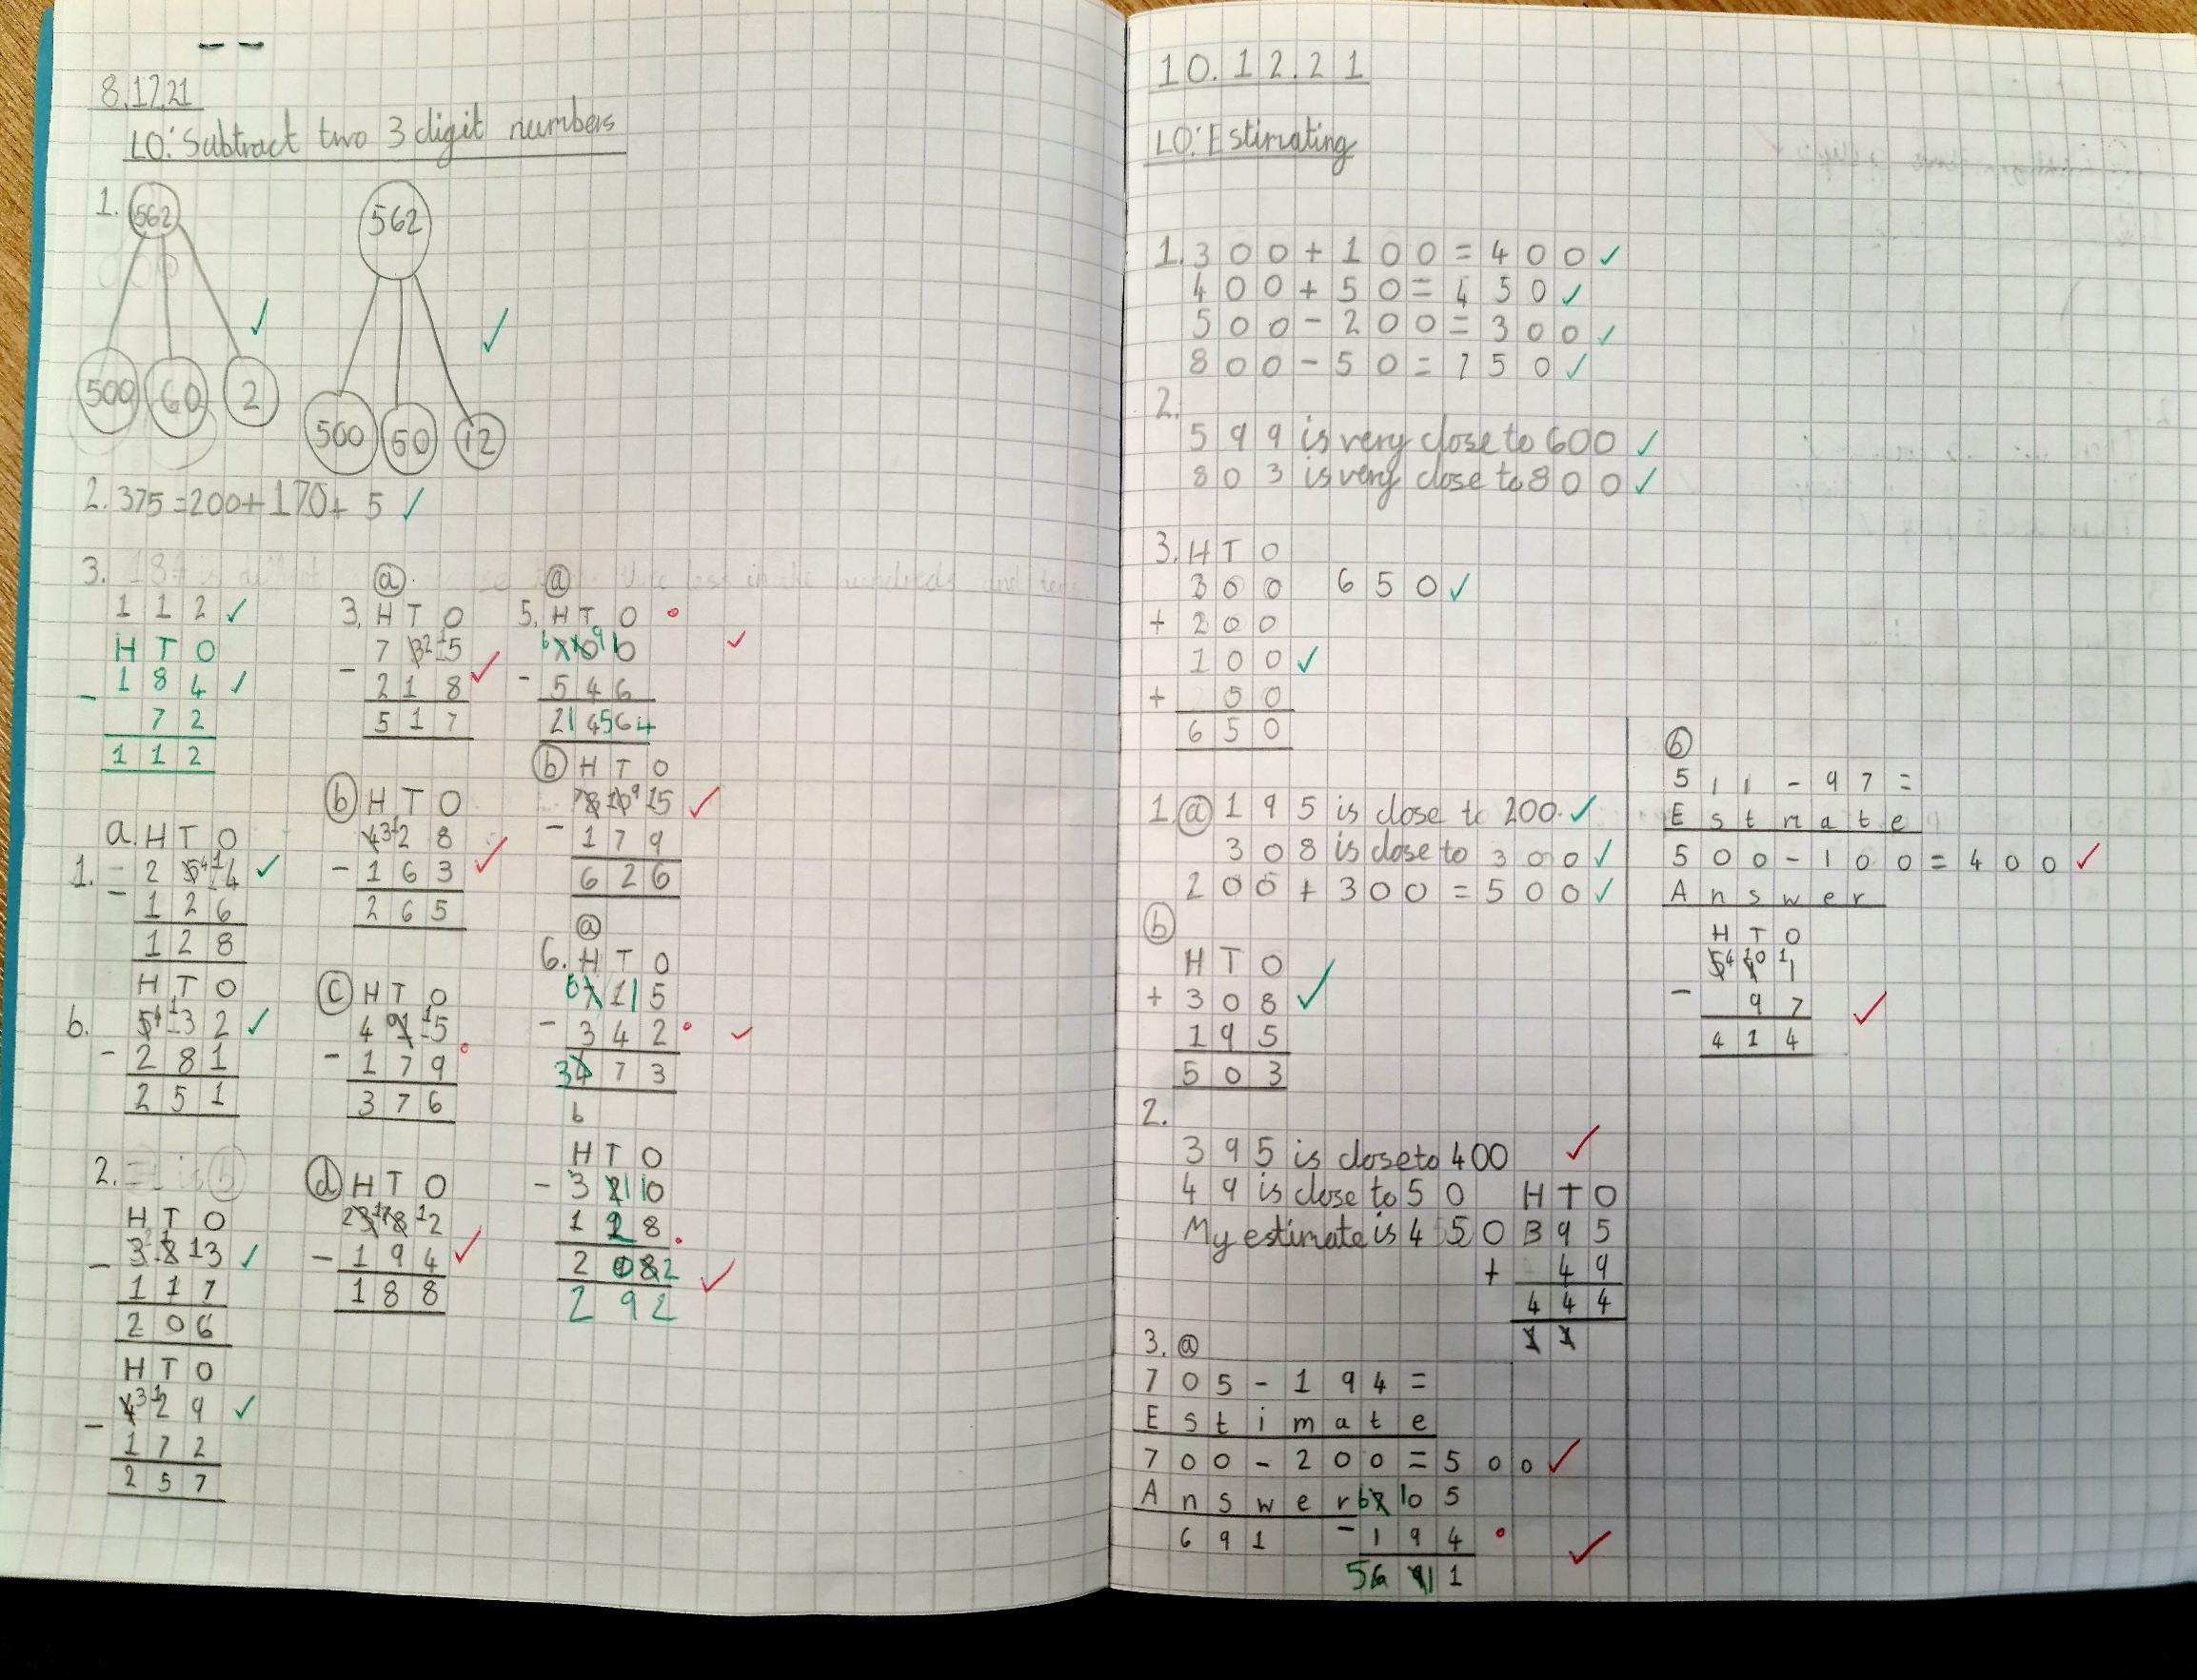 8.12.21
LO: Subtract two 3 digit numbers
1. 562
500 60 2
562
500 50 12
2. 375 = 200 + 170 + 5 ✓
3.
1 1 2 ✓
H T O
1 8 4 ✓
- 7 2
1 1 2
a. H T O
1. - 2 5 4 1 4 ✓
- 1 2 6
1 2 8
H T O
b. 5 4 1 3 2 ✓
- 2 8 1
2 5 1
2.
H T O
- 3 2 1 3 ✓
1 1 7
2 0 6
H T O
4 3 1 2 9 ✓
- 1 7 2
2 5 7
a
3. H T O
7 3 2 1 5
- 2 1 8 ✓
5 1 7
b H T O
4 3 1 2 8
- 1 6 3 ✓
2 6 5
c H T O
4 9 1 5
- 1 7 9
3 7 6
d H T O
2 3 17 8 1 2
- 1 9 4 ✓
1 8 8
a
5. H T O
6 7 10 9 10 ✓
- 5 4 6
1 5 4
b H T O
7 8 10 9 15 ✓
- 1 7 9
6 2 6
a
6. H T O
6 7 11 5
- 3 4 2 ✓
3 4 7 3
b
H T O
- 3 2 1 10
1 2 8
2 8 2
2 9 2 ✓
10.12.21
LO: Estimating
1. 300 + 100 = 400 ✓
400 + 50 = 450 ✓
500 - 200 = 300 ✓
800 - 50 = 750 ✓
2.
599 is very close to 600 ✓
803 is very close to 800 ✓
3. H T O
300 650 ✓
+ 200
100 ✓
+ 50
650
1. a 195 is close to 200. ✓
308 is close to 300 ✓
200 + 300 = 500 ✓
b
H T O
+ 308 ✓
195
503
2.
395 is close to 400 ✓
49 is close to 50
My estimate is 450
H T O
395
+ 49
444
1 1
3. a
705 - 194 =
Estimate
700 - 200 = 500 ✓
Answer 6 7 10 5
691 - 194 ✓
5 6 9 1 1
b
511 - 97 =
Estmate
500 - 100 = 400 ✓
Answer
H T O
5 4 1 10 1 1
- 97 ✓
414